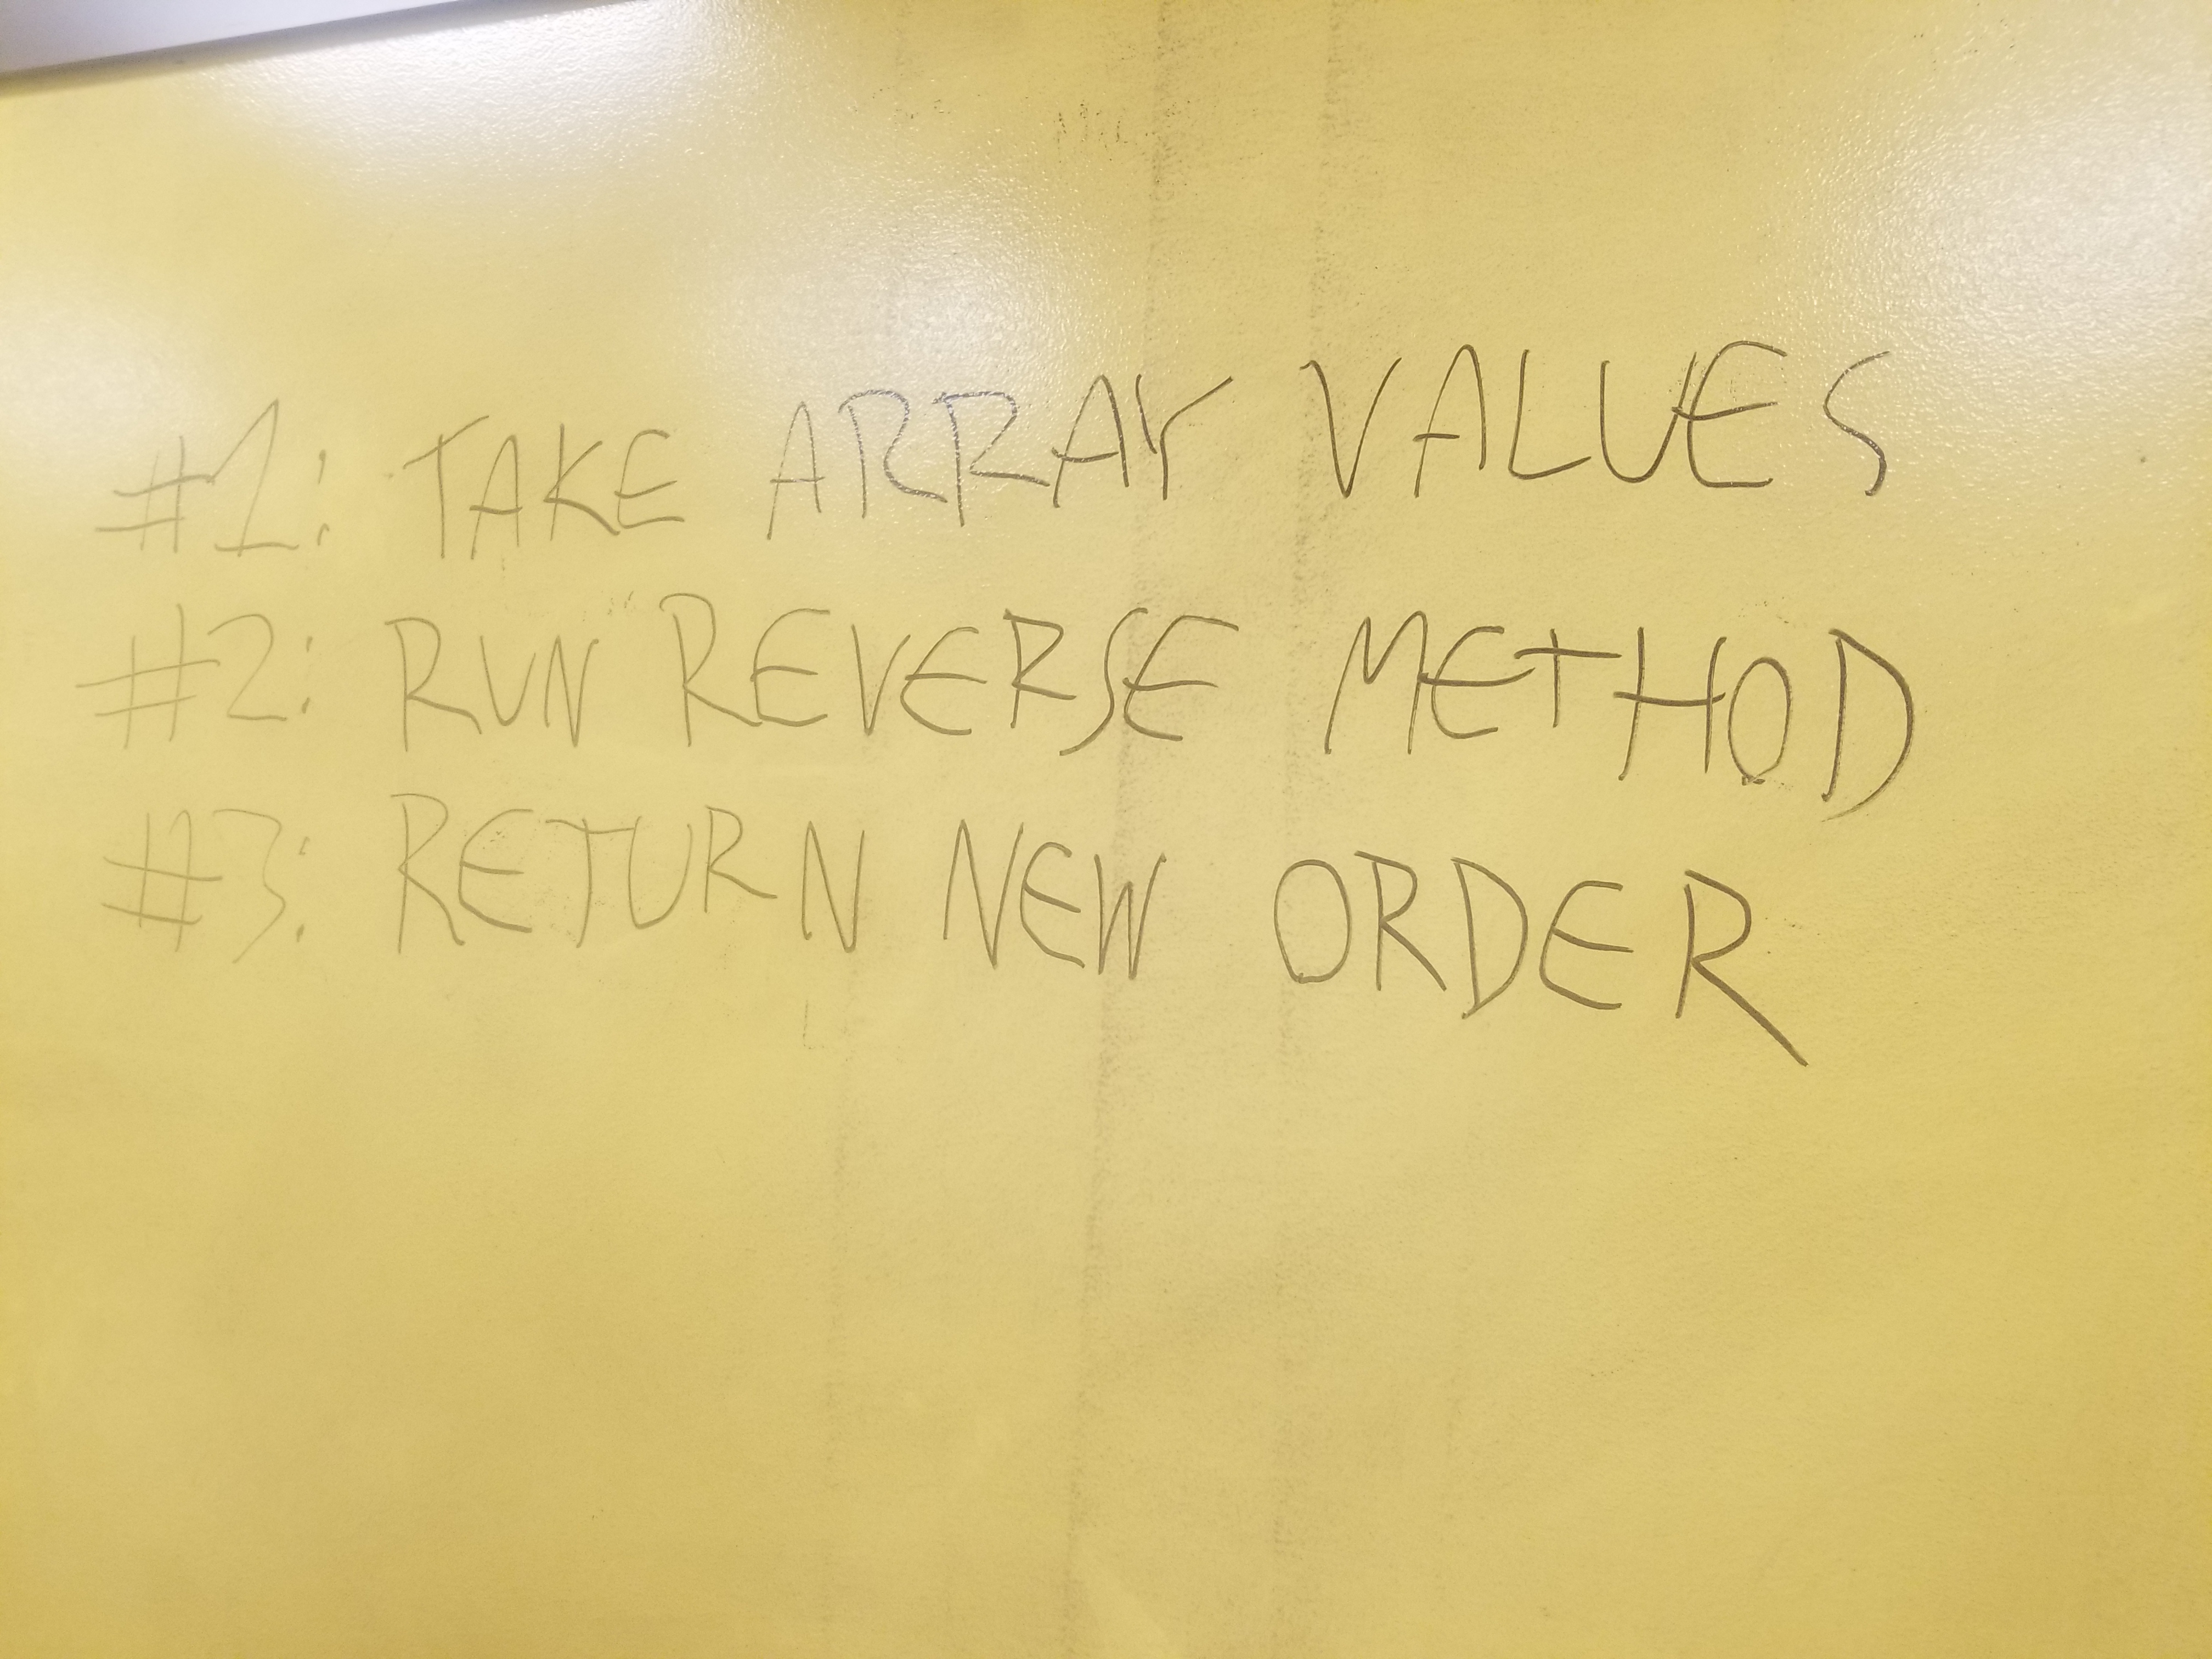 #1: TAKE ARRAY VALUES
#2: RUN REVERSE METHOD
#3: RETURN NEW ORDER